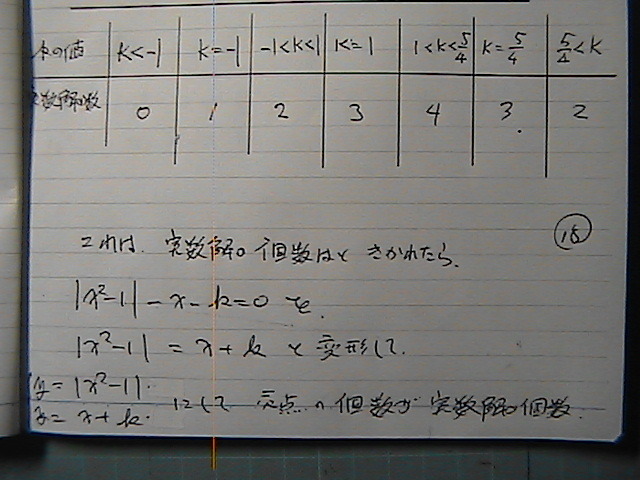 kの値 k<-1 k=-1 -1<k<1 k=1 1<k<5/4 k=5/4 5/4<k
実数解の数 0 1 2 3 4 3 2
これは、実数解の個数はときかれたら、
18
|x²-1|-x-k=0 を
|x²-1| = x+k と変形して
y=|x²-1|
y= x+k にして 交点の個数が実数解の個数.